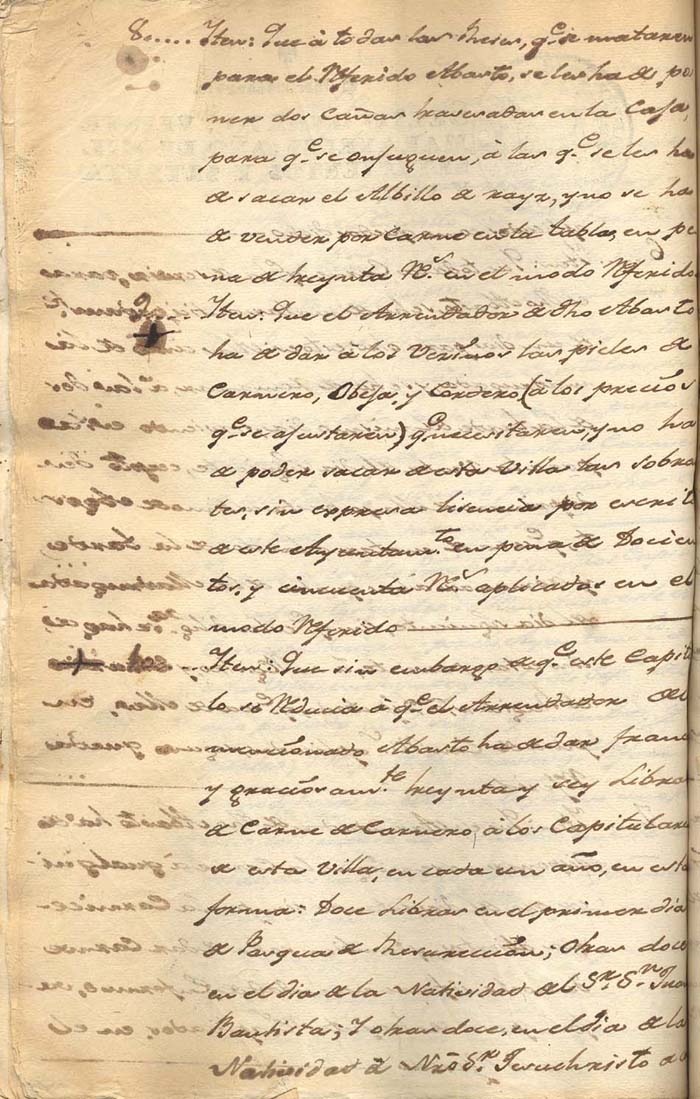 8..... Iten: Que à todas las Reses, q.e se mataren
para el Referido Abasto, se les ha de po
ner dos Cañas traveradas en la Casa,
para q.e se enfuguen, à las q.e se les ha
de sacar el Albillo de rayz, y no se ha
de vender por Carne en la tabla, en pe
na de treynta R.s en el modo Referido
9... Iten: Que el Arrendador de dho Abasto
ha de dar à los Vezinos las pieles de
Carnero, Obeja, y Cordero, (à los precios
q.e se ajustaren,) q.e necesitaren, y no ha
de poder sacar de esta Villa las sobra
tes, sin expresa lisencia por escrito
de este Ayuntam.to en pena de Docien
tos, y cincuenta R.s aplicados en el
modo Referido
10... Iten: Que sin embargo de q.e este Capit
lo se Reducia à q.e el Arrendador del
mencionado Abasto ha de dar franc
y graciosam.te treynta y seys Libras
de Carne de Carnero, à los Capitulare
de esta Villa, en cada un año, en esta
forma: Doce Libras en el primer dia
de Pasqua de Resureccion; Otras doce
en el dia de la Natividad del S.r S.n Juan
Bautista; Y otras doce, en el dia de la
Natividad de Nro S.r Jesuchristo